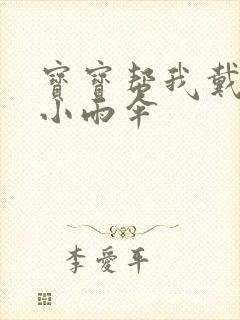 寶寶幫我戴
小雨伞
李愛平